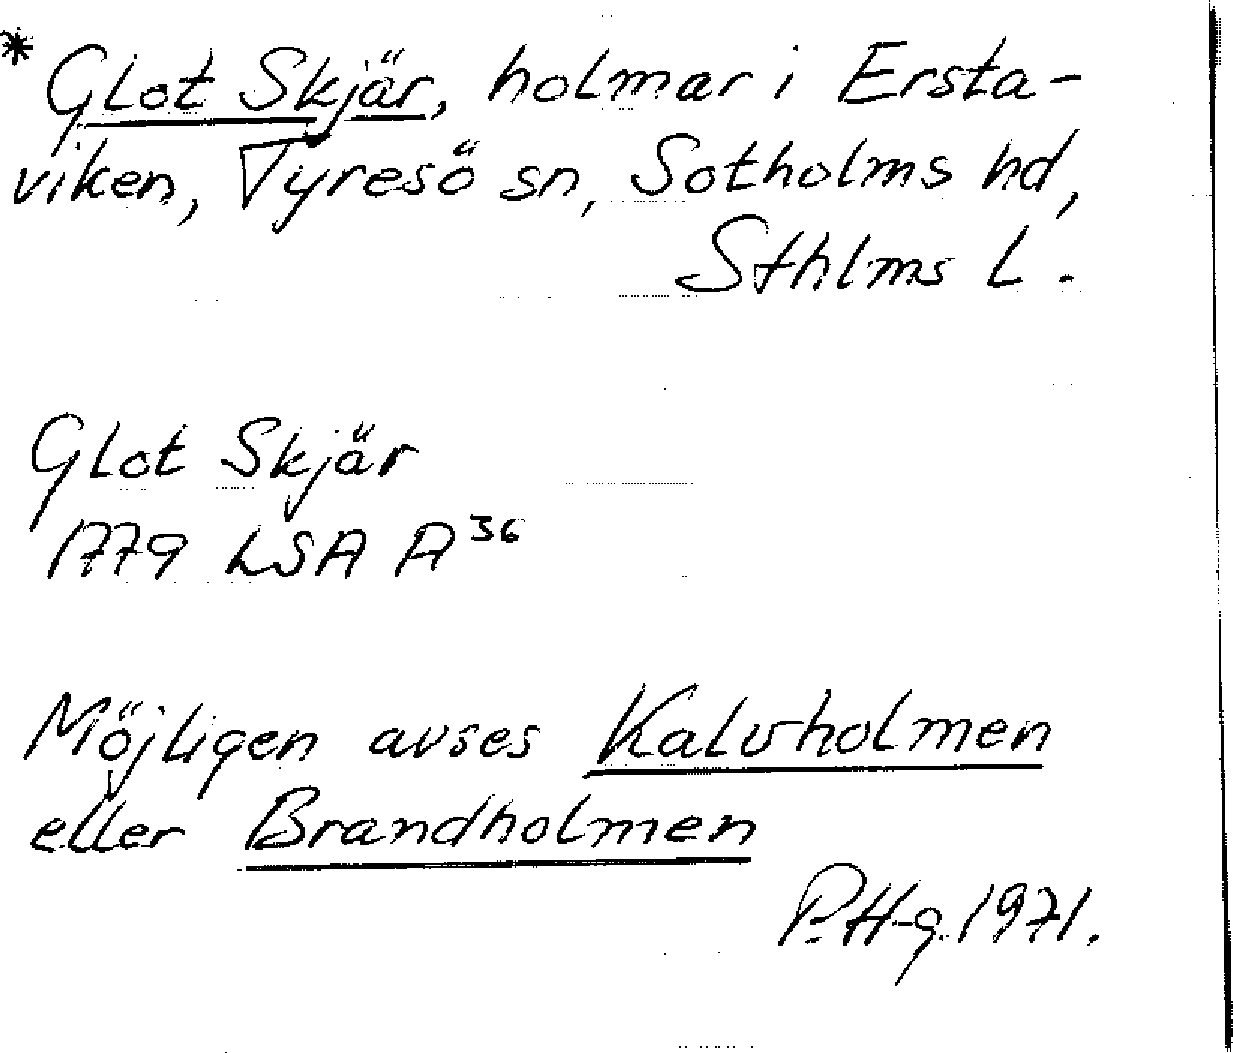 * Glot Skjär, holmar i Ersta-
viken, Tyresö sn, Sotholms hd,
Sthlms L.
Glot Skjär
1779 LSA A36
Möjligen avses Kalvholmen
eller Brandholmen
P.H-g. 1971.